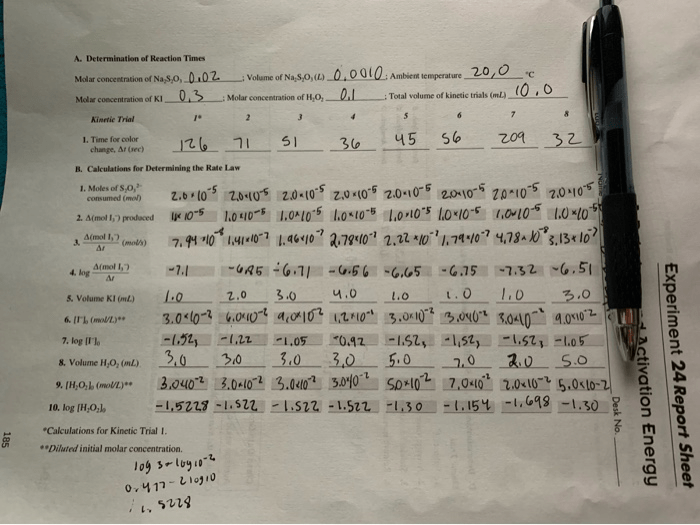 A. Determination of Reaction Times
Molar concentration of Na₂S₂O₃ 0.02 ; Volume of Na₂S₂O₃ (L) 0.0010 ; Ambient temperature 20,0 °C
Molar concentration of KI 0.3 ; Molar concentration of H₂O₂ 0.1 ; Total volume of kinetic trials (mL) 10.0
Kinetic Trial 1* 2 3 4 5 6 7 8
1. Time for color
change, Δt (sec) 126 71 51 36 45 56 209 32
B. Calculations for Determining the Rate Law
1. Moles of S₂O₃²⁻
consumed (mol) 2.0×10⁻⁵ 2.0×10⁻⁵ 2.0×10⁻⁵ 2.0×10⁻⁵ 2.0×10⁻⁵ 2.0×10⁻⁵ 2.0×10⁻⁵ 2.0×10⁻⁵
2. Δ(mol I₃⁻) produced 1×10⁻⁵ 1.0×10⁻⁵ 1.0×10⁻⁵ 1.0×10⁻⁵ 1.0×10⁻⁵ 1.0×10⁻⁵ 1.0×10⁻⁵ 1.0×10⁻⁵
3. Δ(mol I₃⁻)/Δt (mol/s) 7.94×10⁻⁸ 1.41×10⁻⁷ 1.96×10⁻⁷ 2.78×10⁻⁷ 2.22×10⁻⁷ 1.79×10⁻⁷ 4.78×10⁻⁸ 3.13×10⁻⁷
4. log Δ(mol I₃⁻)/Δt -7.1 -6.85 -6.71 -6.56 -6.65 -6.75 -7.32 -6.51
5. Volume KI (mL) 1.0 2.0 3.0 4.0 1.0 1.0 1.0 3.0
6. [I⁻]₀ (mol/L)** 3.0×10⁻² 6.0×10⁻² 9.0×10⁻² 1.2×10⁻¹ 3.0×10⁻² 3.0×10⁻² 3.0×10⁻² 9.0×10⁻²
7. log [I⁻]₀ -1.52, -1.22 -1.05 -0.92 -1.52, -1.52, -1.52, -1.05
8. Volume H₂O₂ (mL) 3.0 3.0 3.0 3.0 5.0 7.0 2.0 5.0
9. [H₂O₂]₀ (mol/L)** 3.0×10⁻² 3.0×10⁻² 3.0×10⁻² 3.0×10⁻² 5.0×10⁻² 7.0×10⁻² 2.0×10⁻² 5.0×10⁻²
10. log [H₂O₂]₀ -1.5228 -1.522 -1.522 -1.522 -1.30 -1.154 -1.698 -1.30
*Calculations for Kinetic Trial 1.
**Diluted initial molar concentration.
log 3 - log10⁻²
0.477 - 2log10
1.5228
185
Experiment 24 Report Sheet
Activation Energy
Desk No.